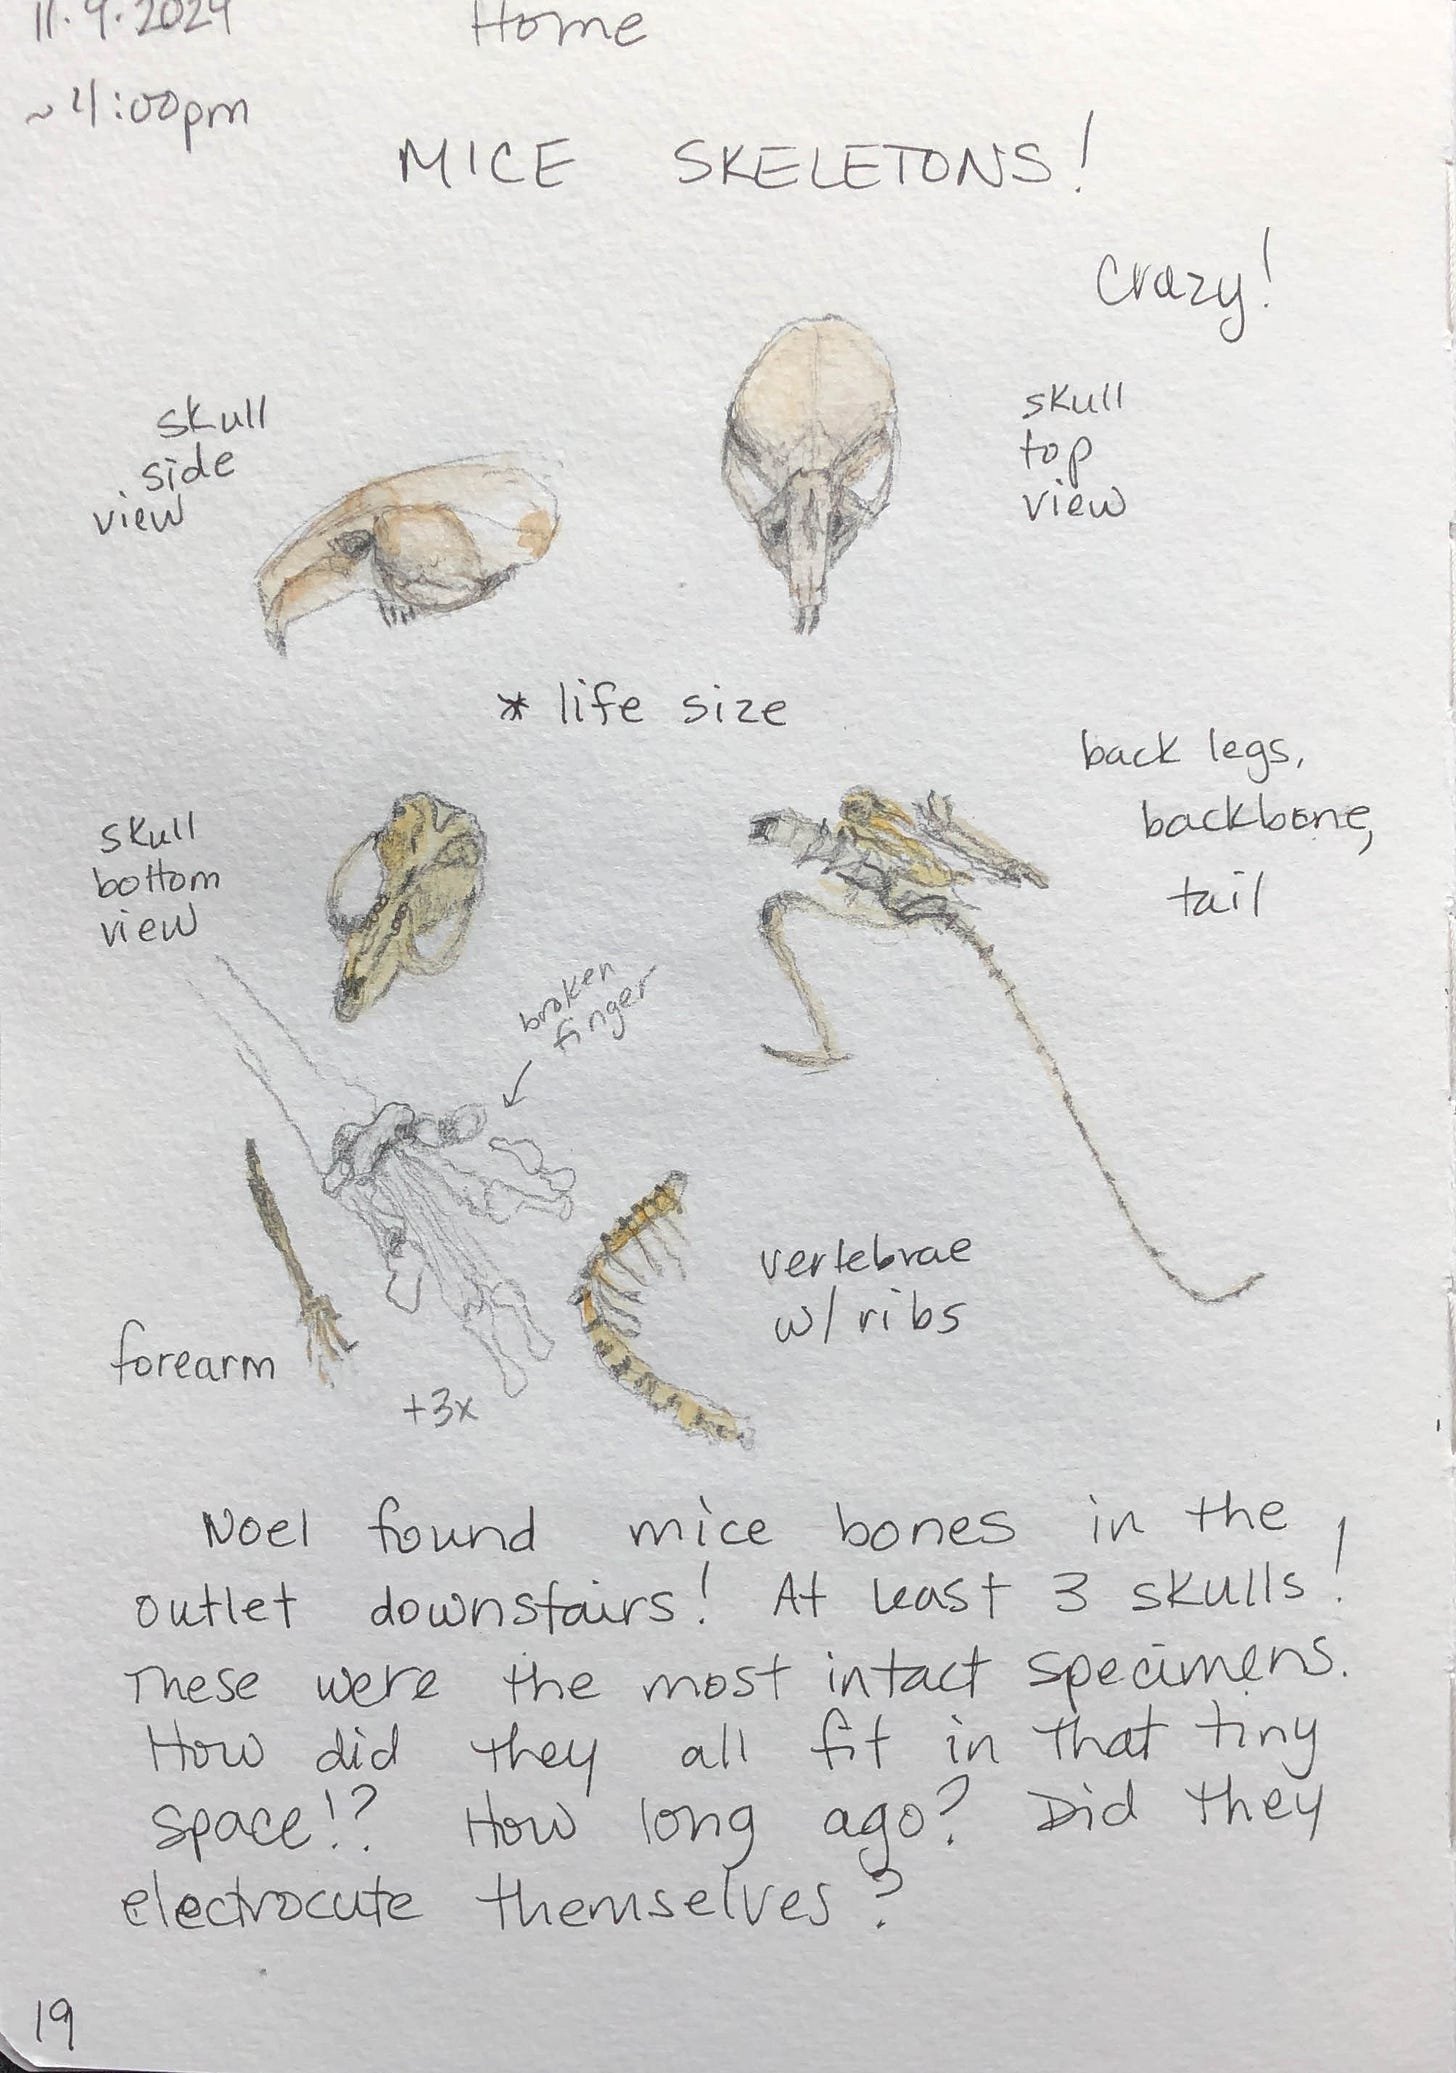 11.9.2024 Home
~4:00pm
MICE SKELETONS!
Crazy!
skull
side
view
skull
top
view
* life size
back legs,
backbone,
tail
skull
bottom
view
broken
finger
vertebrae
w/ ribs
forearm
+3x
Noel found mice bones in the
outlet downstairs! At least 3 skulls!
These were the most intact specimens.
How did they all fit in that tiny
space!? How long ago? Did they
electrocute themselves?
19